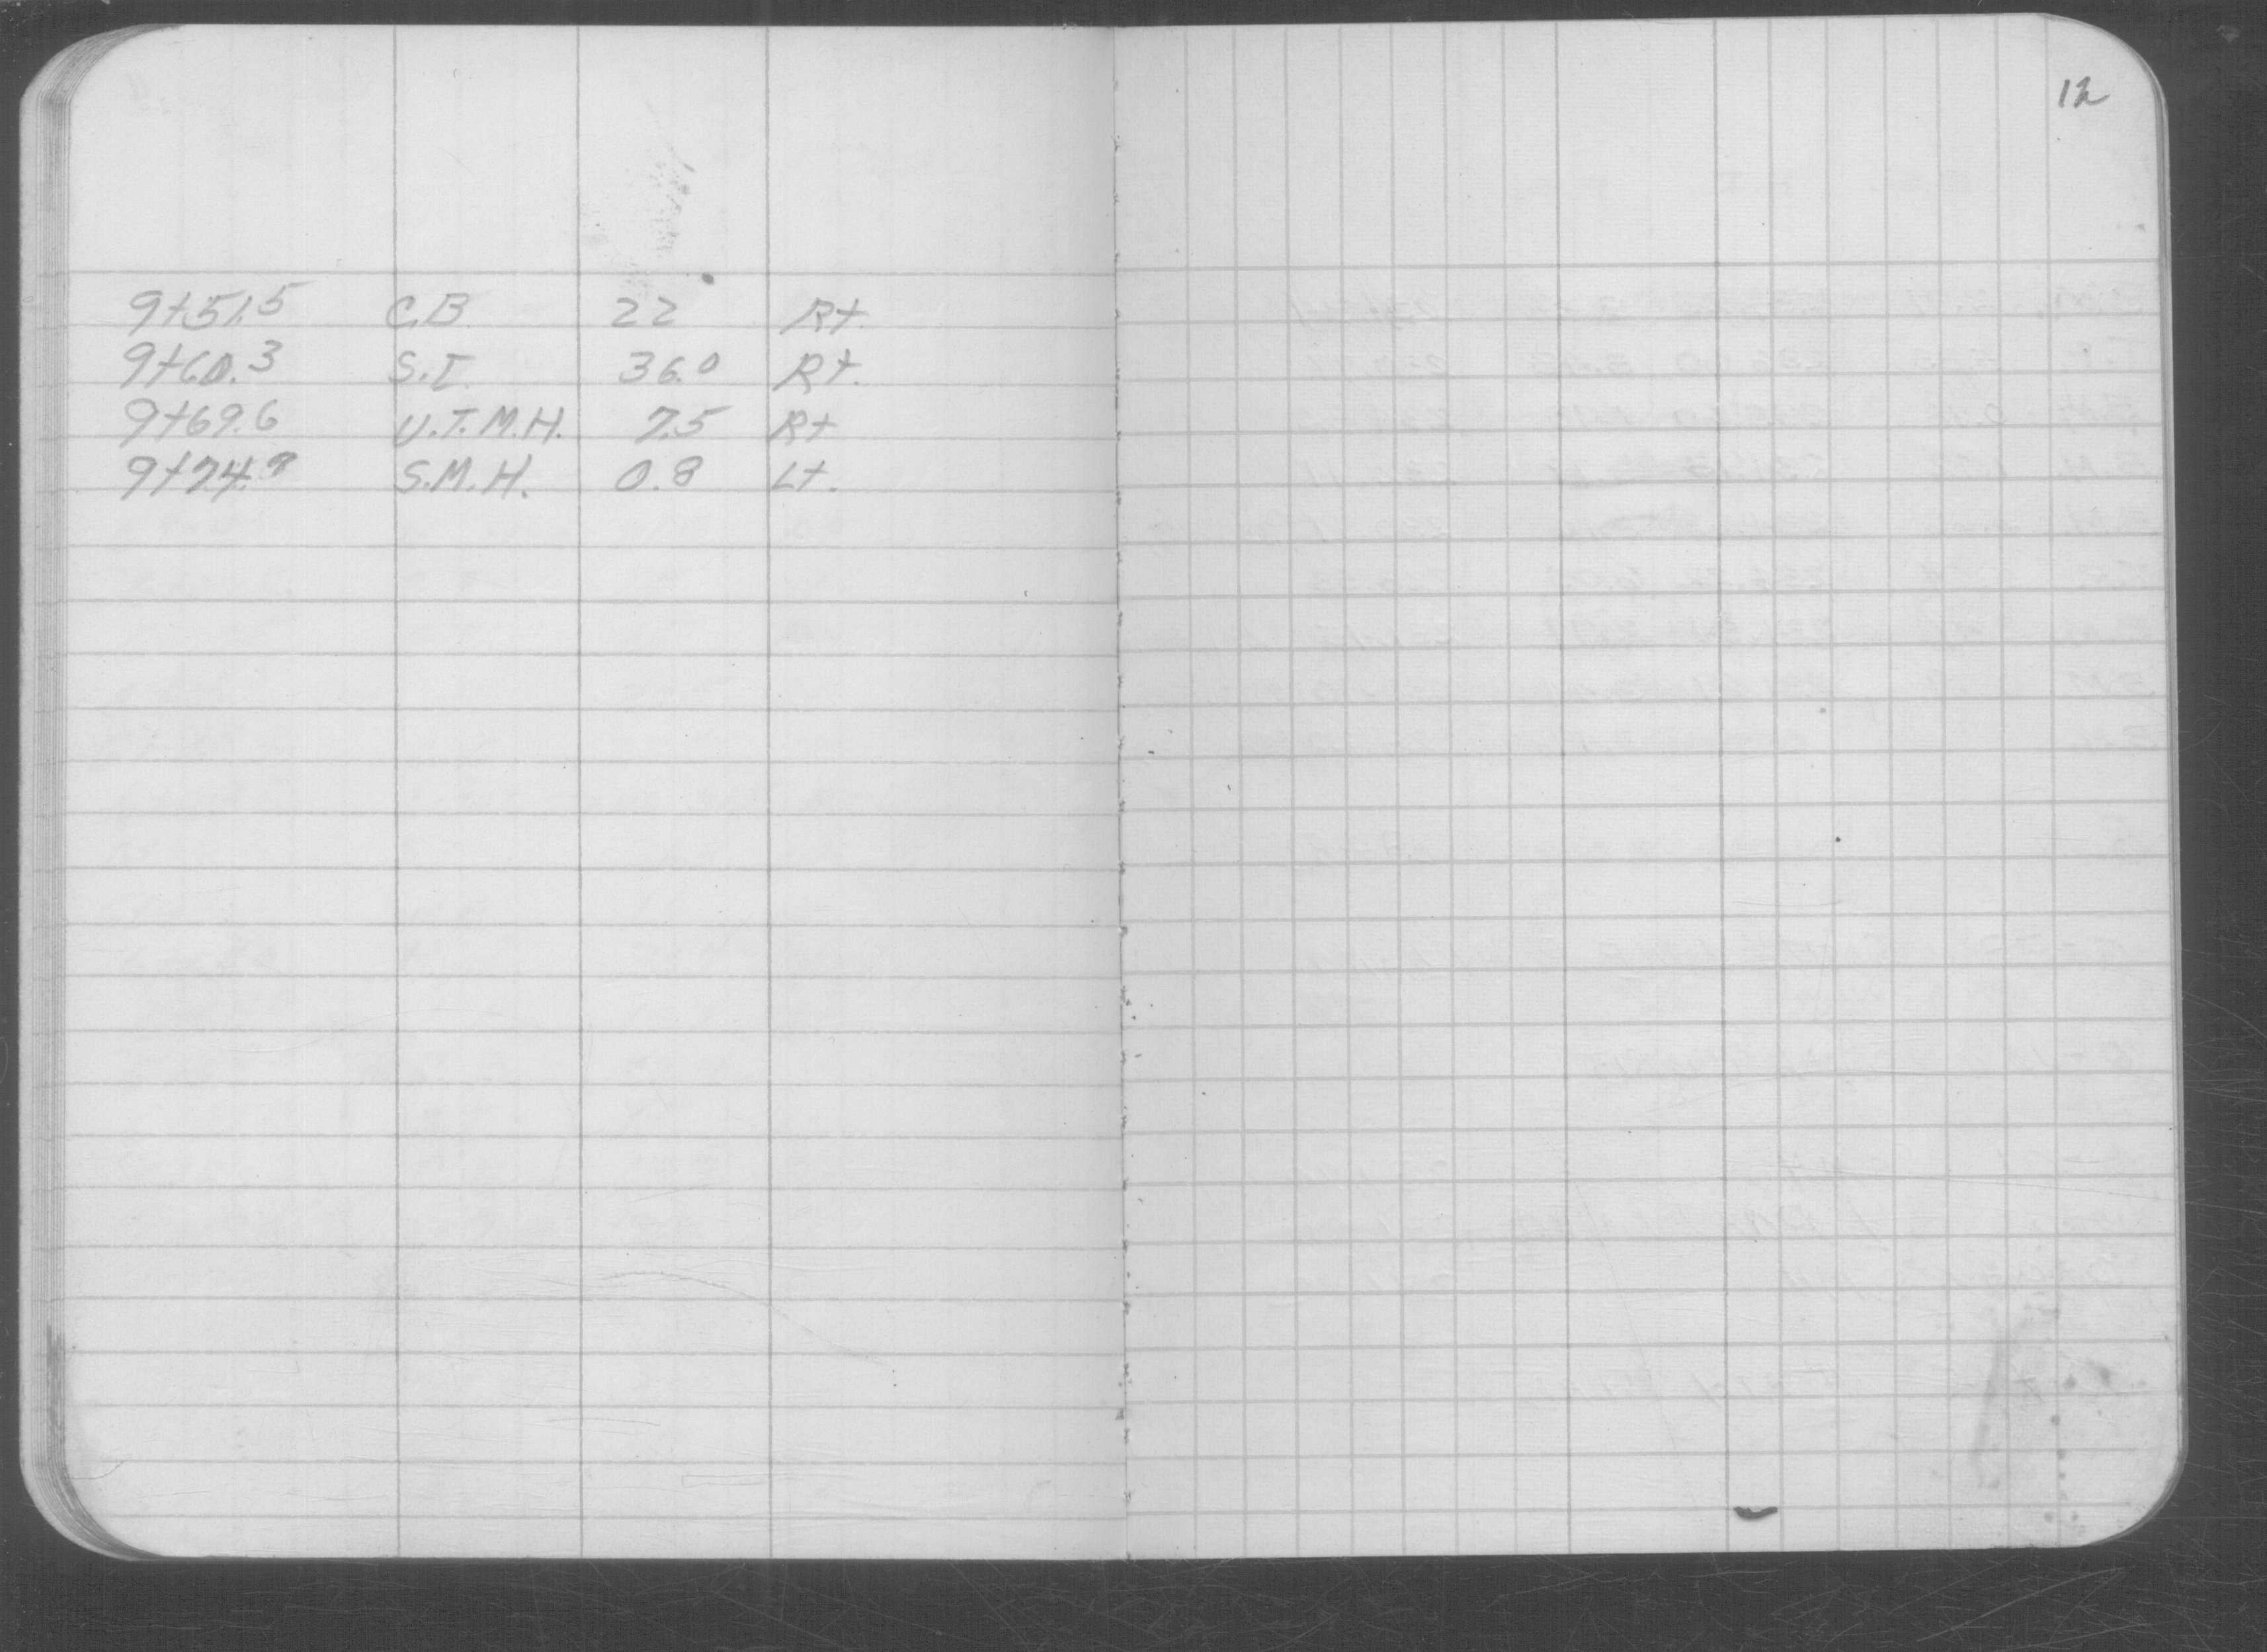 12
9+51.5 C.B. 22 Rt.
9+60.3 S.I. 36.0 Rt.
9+69.6 U.T.M.H. 7.5 Rt
9+74.9 S.M.H. 0.8 Lt.